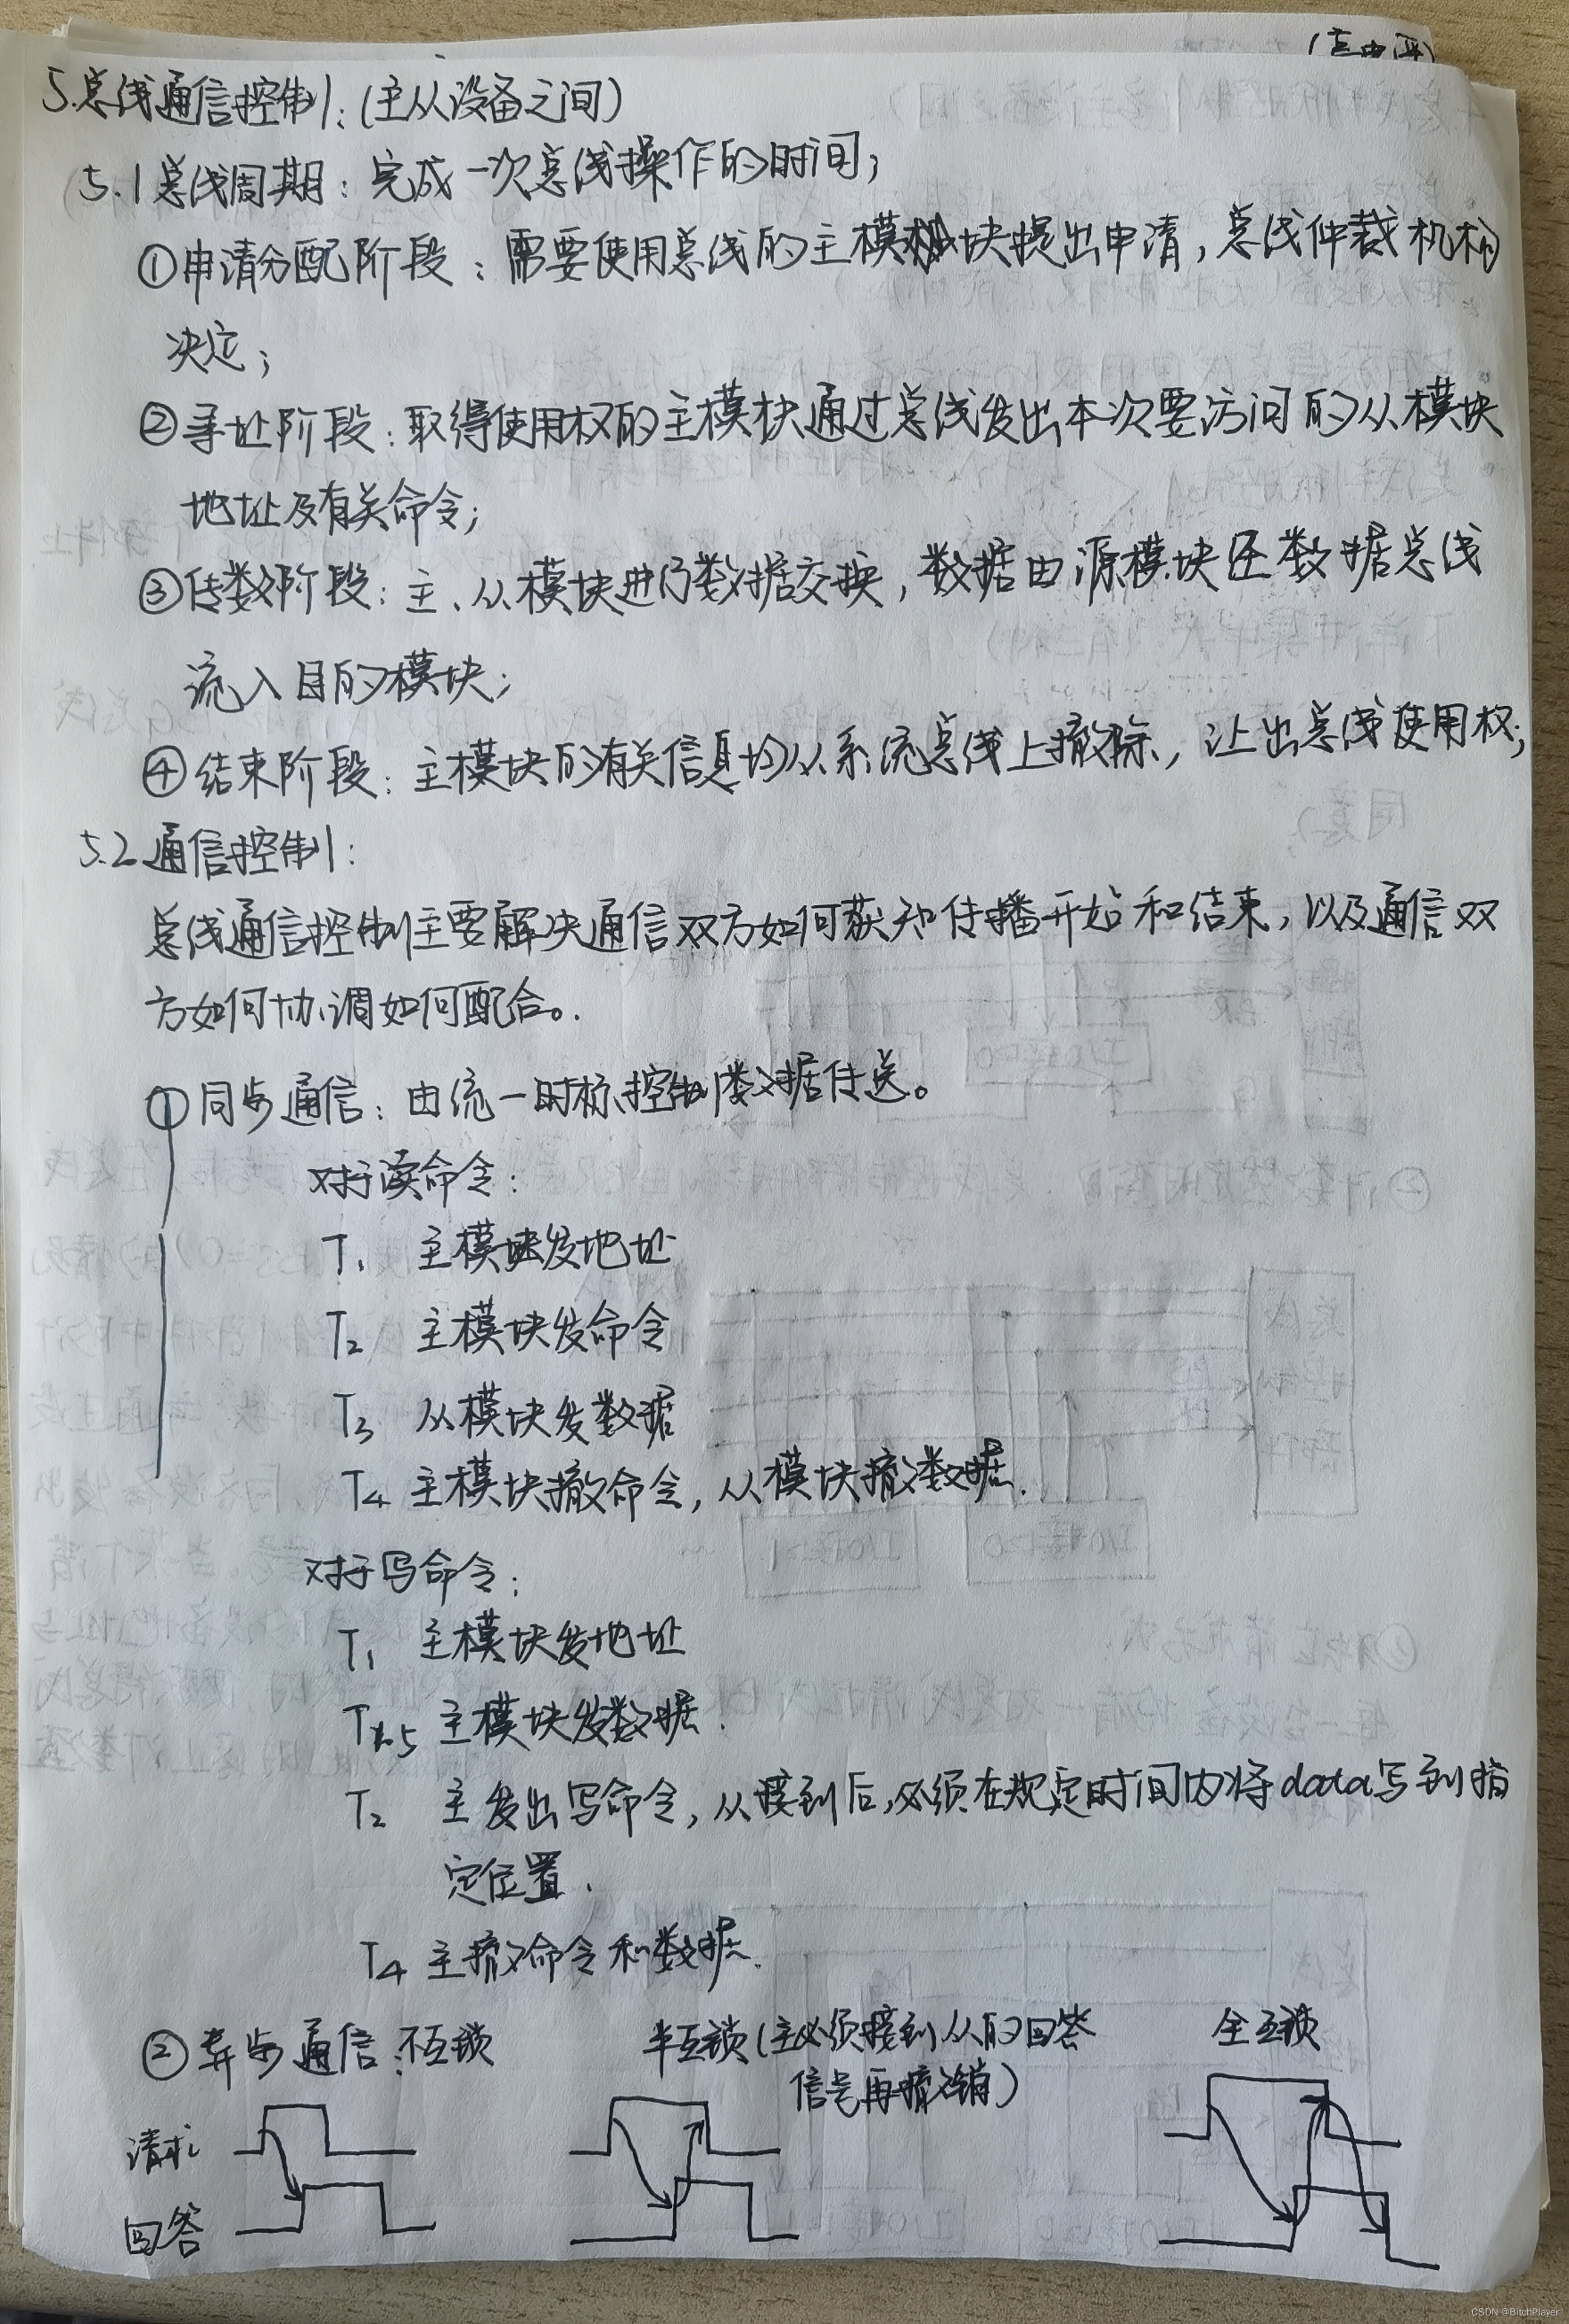 5.总线通信控制:(主从设备之间)
5.1总线周期:完成一次总线操作的时间;
①申请分配阶段:需要使用总线的主模块提出申请,总线仲裁机构
决定;
②寻址阶段:取得使用权的主模块通过总线发出本次要访问的从模块
地址及有关命令;
③传数阶段:主、从模块进行数据交换,数据由源模块经数据总线
流入目的模块;
④结束阶段:主模块的有关信息均从系统总线上撤除,让出总线使用权;
5.2通信控制:
总线通信控制主要解决通信双方如何获知传播开始和结束,以及通信双
方如何协调如何配合。
①同步通信:由统一时标控制数据传送。
对于读命令:
T₁ 主模块发地址
T₂ 主模块发命令
T₃ 从模块发数据
T₄ 主模块撤命令,从模块撤数据.
对于写命令:
T₁ 主模块发地址
T1.5 主模块发数据.
T₂ 主发出写命令,从接到后,必须在规定时间内将data写到指
定位置.
T₄ 主撤命令和数据.
②异步通信:不互锁 半互锁(主必须接到从的回答 全互锁
信号再撤销)
请求
回答
CSDN @BitchPlayer